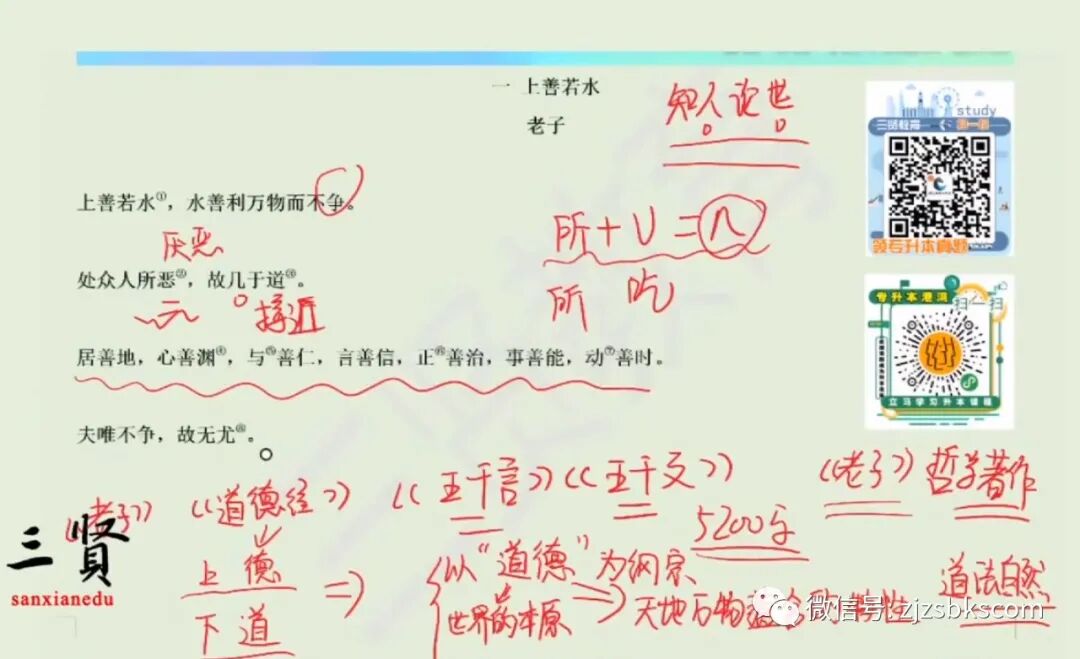 一 上善若水
知人论世
老子
study
三贤教育 扫一扫
领专升本真题
上善若水①，水善利万物而不争。
厌恶
所+V=n
处众人所恶②，故几于道③。
接近
所 吃
专升本港湾
扫一扫
立马学习升本课程
居善地，心善渊④，与⑤善仁，言善信，正⑥善治，事善能，动⑦善时。
夫唯不争，故无尤⑧。
《老子》《道德经》《五千言》《五千文》 《老子》哲学著作
5200字
三賢
sanxianedu
上 德
下 道
以“道德”为纲宗
世界的本原
天地万物
特性
道法自然
微信号: zjzsbkscom